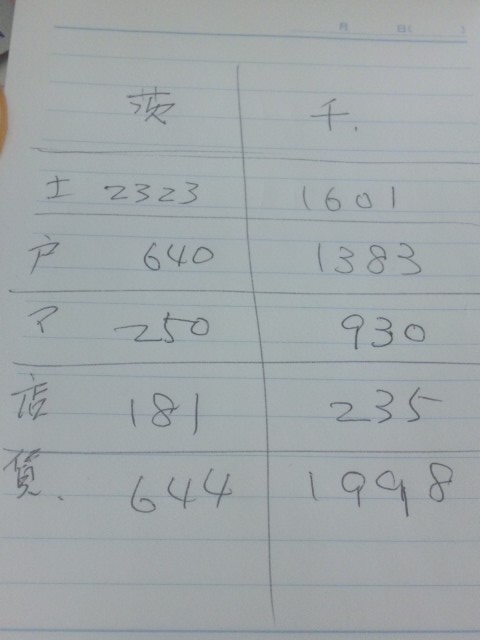 月 日( )
茨 千.
土 2323 1601
戸 640 1383
ア 250 930
店 181 235
賃. 644 1998